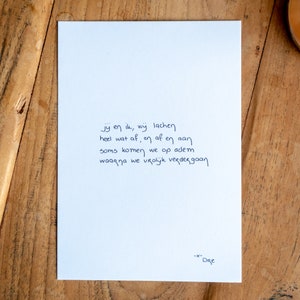 jij en ik, wij lachen
heel wat af, en af en aan
soms komen we op adem
waarna we vrolijk verdergaan